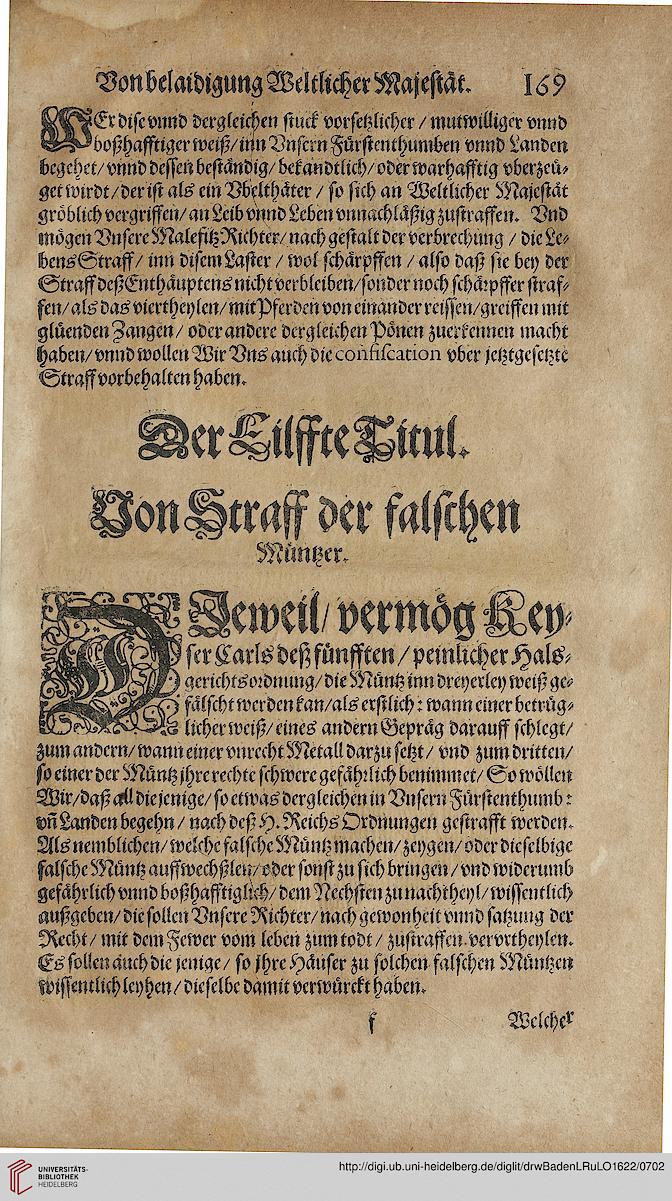 Von belaidigung Weltlicher Majestät. 169
WEr dise vnnd dergleichen stuck vorsetzlicher / mutwilliger vnnd
boßhafftiger weiß / inn Vnsern Fürstenthumben vnnd Landen
begehet / vnnd dessen beständig / bekandtlich / oder warhafftig vberzeü-
get wirdt / der ist als ein Vbelthäter / so sich an Weltlicher Majestät
gröblich vergriffen / an Leib vnnd Leben vnnachläßig zustraffen. Vnd
mögen Vnsere MalefitzRichter / nach gestalt der verbrechung / die Le-
bensStraff / inn disem Laster / wol schärpffen / also daß sie bey der
Straff deß Enthäuptens nicht verbleiben / sonder noch schärpffer straf-
fen / als das viertheylen / mit Pferden von einander reissen / greiffen mit
glüenden Zangen / oder andere dergleichen Pönen zuerkennen macht
haben / vnnd wollen Wir Vns auch die confiscation vber jetztgesetzte
Straff vorbehalten haben.
Der Eilffte Titul.
Von Straff der falschen
Müntzer.
DIeweil / vermög Key-
ser Carls deß fünfften / peinlicher Hals-
gerichtsordnung / die Müntz inn dreyerley weiß ge-
fälscht werden kan / als erstlich : wann einer betrüg-
licher weiß / eines andern Gepräg darauff schlegt /
zum andern / wann einer vnrecht Metall darzu setzt / vnd zum dritten /
so einer der Müntz jhre rechte schwere gefährlich benimmet / So wöllen
Wir / daß all die jenige / so etwas dergleichen in Vnsern Fürstenthumb :
vñ Landen begehn / nach deß H. Reichs Ordnungen gestrafft werden.
Als nemblichen / welche falsche Müntz machen / zeygen / oder dieselbige
falsche Müntz auffwechßlen / oder sonst zu sich bringen / vnd widerumb
gefährlich vnnd boßhafftiglich / dem Nechsten zu nachtheyl / wissentlich
außgeben / die sollen Vnsere Richter / nach gewonheit vnnd satzung der
Recht / mit dem Fewer vom leben zum todt / zustraffen vervrtheylen.
Es sollen auch die jenige / so jhre Häuser zu solchen falschen Müntzen
wissentlich leyhen / dieselbe damit verwürckt haben.
f Welcher
UNIVERSITÄTS-
BIBLIOTHEK
HEIDELBERG
http://digi.ub.uni-heidelberg.de/diglit/drwBadenLRuLO1622/0702